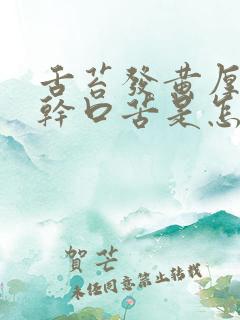 舌苔發黃厚
幹口苦是怎
賀芒
未經同意禁止轉載